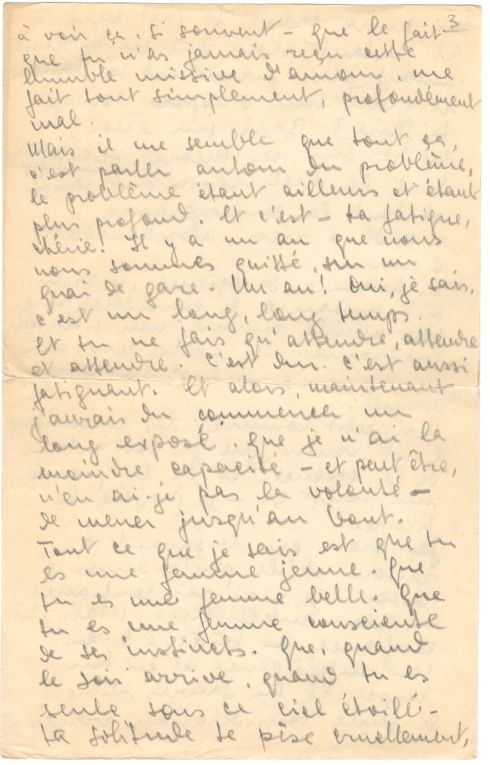 3
à voir ça. Si souvent – que le fait
que tu n'as jamais reçu cette
humble missive d'amour, me
fait tout simplement, profondément
mal.
Mais il me semble que tout ça,
c'est parler autour du problème,
le problème étant ailleurs et étant
plus profond. Et c'est – ta fatigue,
chérie. Il y a un an que nous
nous sommes quitté, sur un
quai de gare. Un an! Oui, je sais,
c'est un long, long temps.
Et tu ne fais qu'attendre, attendre
et attendre. C'est dur. C'est aussi
fatiguant. Et alors, maintenant
j'aurais du commencer un
long exposé, que je n'ai la
moindre capacité – et peut être,
n'en ai-je pas la volonté –
de mener jusqu'au bout.
Tout ce que je sais est que tu
es une femme jeune. Que
tu es une femme belle. Que
tu es une femme consciente
de ses instincts. Que, quand
le soir arrive, quand tu es
seule sous ce ciel étoilé –
ta solitude te pèse cruellement,